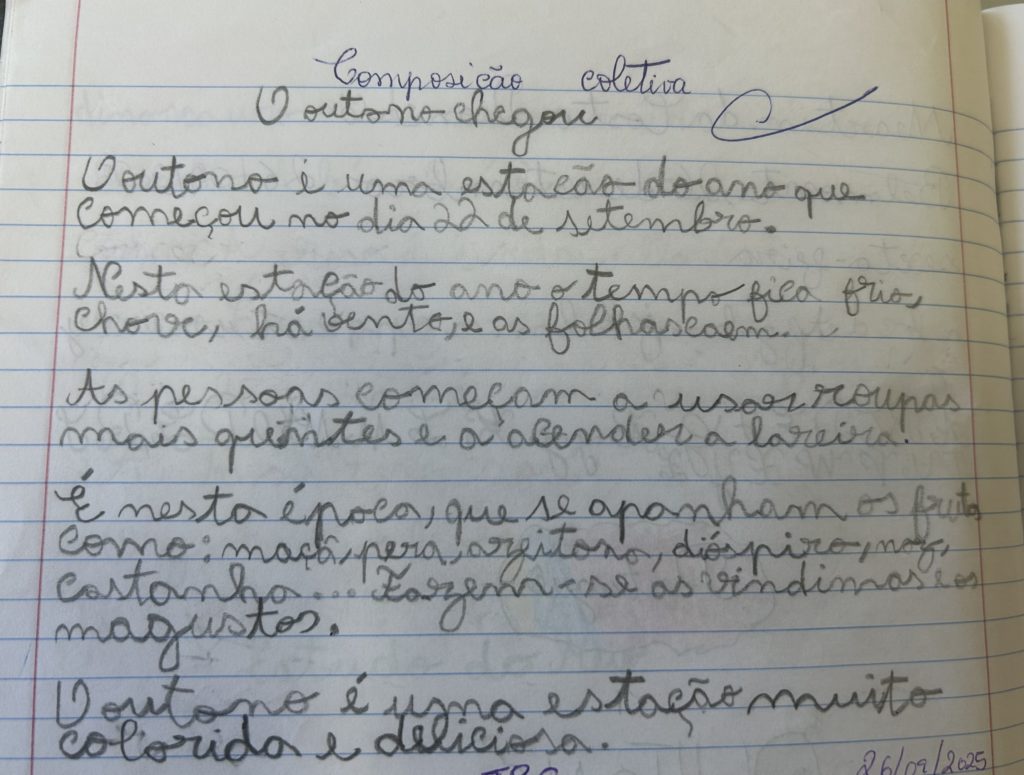 Composição coletiva
O outono chegou
O outono é uma estação do ano que
começou no dia 22 de setembro.
Nesta estação do ano o tempo fica frio,
chove, há vento, e as folhas caem.
As pessoas começam a usar roupas
mais quentes e a acender a lareira.
É nesta época, que se apanham os frutos
como: maçã, pera, azeitona, dióspiro, noz,
castanha... Fazem-se as vindimas e os
magustos.
O outono é uma estação muito
colorida e deliciosa.
26/09/2025